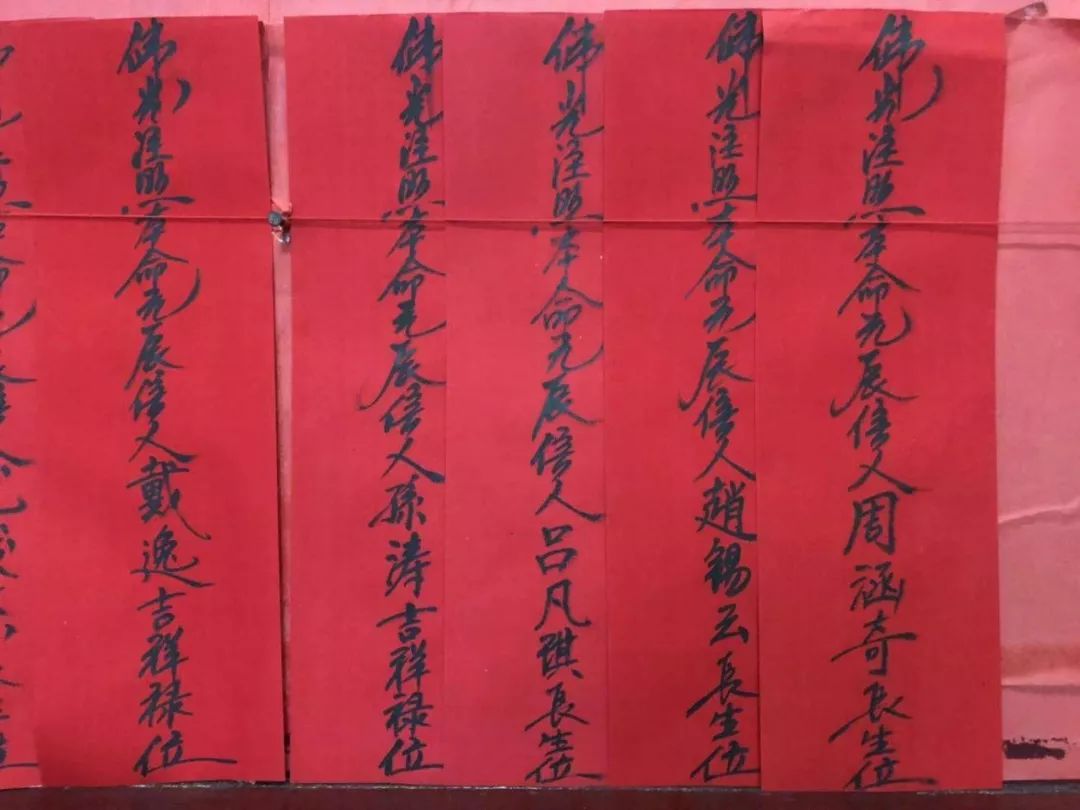 佛光注照本命元辰信人周涵奇長生位
佛光注照本命元辰信人趙錫云長生位
佛光注照本命元辰信人吕凡骐長生位
佛光注照本命元辰信人孫涛吉祥禄位
佛光注照本命元辰信人戴逸吉祥禄位